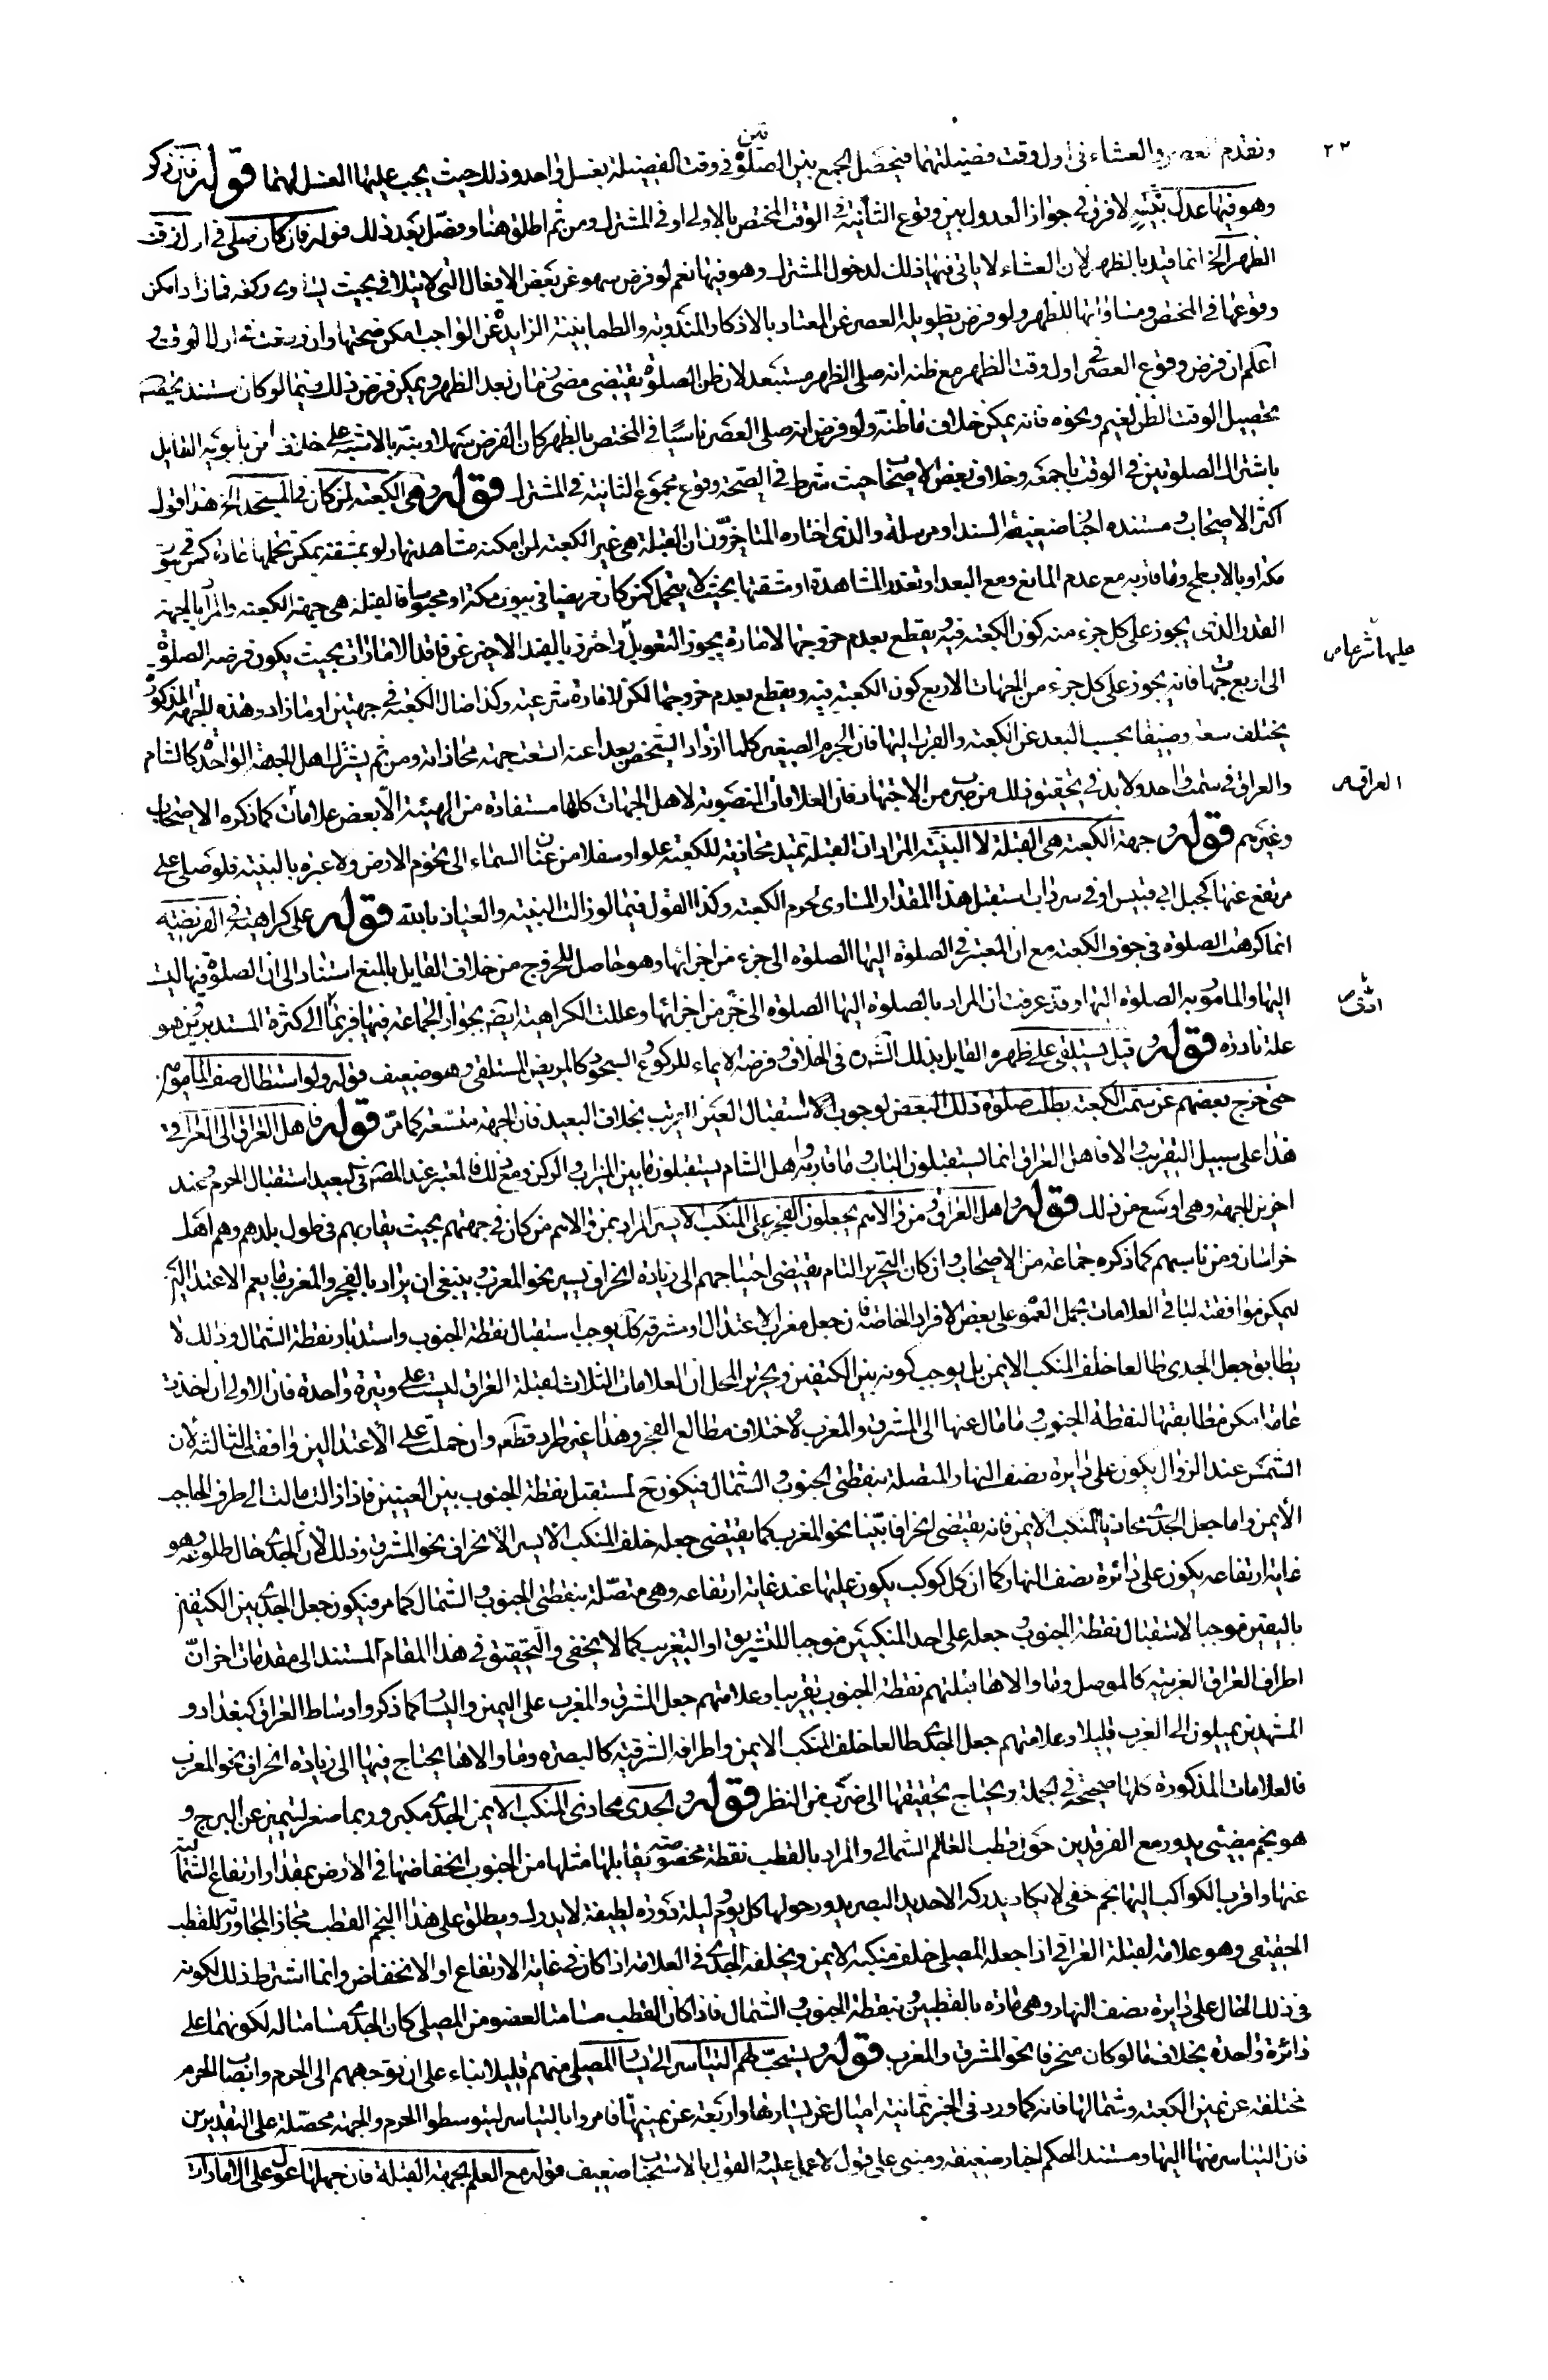 وتقدم العصر والعشاء في اول وقت فضيلتهما فيحصل الجمع بين الصلوتين في وقت الفضيلة بغسل واحد وذلك حيث يجب عليها الغسل لهما قوله فان ذكر
وهو فيها عدل بنيته لا فرق في جواز العدول بين وقوع الثانية في الوقت المختص بالاولى او في المشترك ومن ثم اطلق هنا وفصل بعد ذلك قوله فان كان صلى في اول وقت
الظهر الخ انما قيد بالظهر لان العشاء لا ياتي فيها ذلك لدخول المشترك وهو فيها نعم لو فرض سهوه عن بعض الافعال التي لا تتلافى بحيث يساوى ركعة فما زاد امكن
وقوعها في المختص ومساواتها للظهر ولو فرض تطويله العصر عن المعتاد بالاذكار المندوبة والطمانينة الزايدة عن الواجب امكن صحتها وان وقعت في اول الوقت و
اعلم ان فرض وقوع العصر في اول وقت الظهر مع ظنه انه صلى الظهر مستبعد لان ظن الصلوة يقتضي مضى زمان بعد الظهر ويمكن فرض ذلك فيما لو كان مستند تحقيقه
بتحصيل الوقت الظن لغيم ونحوه فانه يمكن خلاف ما ظنه ولو فرض انه صلى العصر ناسيا في المختص بالظهر كان الفرض سهلا ونبه بالاشبه على خلاف ابن بابويه القايل
باشتراك الصلوتين في الوقت باجمعه وخلاف بعض الاصحاب حيث شرط في الصحة وقوع مجموع الثانية في المشترك قوله وهي الكعبة لمن كان في المسجد الخ هذا قول
اكثر الاصحاب ومستنده اخبار ضعيفة السند او مرسلة والذي اختاره المتاخرون ان القبلة هي عين الكعبة لمن امكنه مشاهدتها ولو بمشقة يمكن تحملها عادة كمن في بيوت
مكة او بالابطح وما قاربه مع عدم المانع ومع البعد او تعذر المشاهدة او مشقتها بحيث لا يتحمل كمن كان مريضا في بيوت مكة او محبوسا فالقبلة هي جهة الكعبة والمراد بالجهة
القدر الذي يجوز على كل جزء منه كون الكعبة فيه ويقطع بعدم خروجها لامارة يجوز التعويل عليها شرعا واحترز بالقيد الاخير عن فاقد الامارات بحيث يكون فرضه الصلوة
الى اربع جهات فانه يجوز على كل جزء من الجهات الاربع كون الكعبة فيه ويقطع بعدم خروجها لكن لا امارة شرعية وكذا ضال الكعبة في جهتين او ما زاد وهذه الجهة المذكورة
يختلف سعة وضيقا بحسب البعد عن الكعبة والقرب اليها فان الجرم الصغير كلما ازداد الشخص بعدا عنه اتسعت جهة محاذاته ومن ثم يشترك اهل الجهة الواحدة كالشام
والعراق في سمت واحد ولا بد في تحقيق ذلك من ضرب من الاجتهاد فان العلامات المنصوبة لاهل الجهات كلها مستفادة من الهيئة الا بعض علامات العراق كما ذكره الاصحاب
وغيرهم قوله وجهة الكعبة هي القبلة لا البنية المراد ان القبلة تمتد محاذية للكعبة علوا وسفلا من عنان السماء الى تخوم الارض ولا عبرة بالبنية فلو صلى على
مرتفع عنها كجبل ابي قبيس او في سرداب استقبل هذا المقدار المساوى لجرم الكعبة وكذا القول فيما لو زالت البنية والعياذ بالله قوله على كراهية في الفريضة
انما كرهت الصلوة في جوف الكعبة مع ان المعتبر في الصلوة اليها الصلوة الى جزء من اجزائها وهو حاصل للخروج من خلاف القايل بالمنع استنادا الى ان الصلوة فيها ليست
اليها والمامور به الصلوة اليها وقد عرفت ان المراد بالصلوة اليها الصلوة الى جزء من اجزائها وعللت الكراهية ايضا بجواز الجماعة فيها فربما ادى الى كثرة المستدبرين وهو
علة نادرة قوله وقيل يستلقي على ظهره القايل بذلك الشيخ في الخلاف وفرضه الايماء للركوع والسجود كالمريض المستلقي وهو ضعيف قوله ولو استطال صف المامومين
حتى خرج بعضهم عن سمت الكعبة بطلت صلوة ذلك البعض لوجوب استقبال العين للقريب بخلاف البعيد فان الجهة متسعة كما مر قوله فاهل العراق الى العراقي
هذا على سبيل التقريب والا فاهل العراق انما يستقبلون الباب وما قاربه واهل الشام يستقبلون ما بين الميزاب والركن ومع ذلك فالمعتبر عند المصنف في البعيد استقبال الحرم وعند
اخرين الجهة وهي اوسع من ذلك قوله واهل العراق ومن والاهم يجعلون الفجر على المنكب الايسر المراد بمن والاهم من كان في جهتهم بحيث يقاربهم في طول بلدهم وهم اهل
خراسان ومن ناسبهم كما ذكره جماعة من الاصحاب وان كان التحرير التام يقتضي احتياجهم الى زيادة انحراف يسير نحو المغرب وينبغي ان يراد بالفجر والمغرب ما يعم الاعتدالين
ليمكن موافقته لباقي العلامات بحمل العموم على بعض الافراد الخاصة فان جعل مغرب الاعتدال ومشرقه كذلك يوجب استقبال نقطة الجنوب واستدبار نقطة الشمال وذلك لا
يطابق جعل الجدى طالعا خلف المنكب الايمن بل يوجب كونه بين الكتفين وتحرير المحل ان العلامات الثلاث لقبلة العراق ليست على وتيرة واحدة فان الاولى ان اخذت
عامة امكن مطابقتها لنقطة الجنوب وما مال عنها الى المشرق والمغرب لاختلاف مطالع الفجر وهذا غير مراد قطعا وان حملت على الاعتدالين وافقت الثالثة لان
الشمس عند الزوال يكون على دايرة نصف النهار المتصلة بنقطتي الجنوب والشمال فيكون ح لمستقبل نقطة الجنوب بين العينين فاذا زالت مالت الى طرف الحاجب
الايمن واما جعل الجدى محاذيا للمنكب الايمن فانه يقتضي انحرافا بينا نحو المغرب كما يقتضي جعله خلف المنكب الايسر الانحراف نحو المشرق وذلك لان الجدى حال طلوعه وهو
غاية ارتفاعه يكون على دائرة نصف النهار كما ان كل كوكب يكون عليها عند غاية ارتفاعه وهي متصلة بنقطتي الجنوب والشمال كما مر فيكون جعل الجدى بين الكتفين
باليقين موجبا لاستقبال نقطة الجنوب وجعله على احد المنكبين موجبا للتشريق او التغريب كما لا يخفى والتحقيق في هذا المقام المستند الى مقدمات اخر ان
اطراف العراق الغربية كالموصل وما والاها قبلتهم نقطة الجنوب تقريبا وعلامتهم جعل المشرق والمغرب على اليمين واليسار كما ذكر واوساط العراق كبغداد و
المشهدين يميلون الى المغرب قليلا وعلامتهم جعل الجدى طالعا خلف المنكب الايمن واطرافه الشرقية كالبصرة وما والاها يحتاج فيها الى زيادة انحراف نحو المغرب
فالعلامات المذكورة كلها صحيحة في الجملة ويحتاج تحقيقها الى ضرب من النظر قوله والجدى محاذى المنكب الايمن الجدى مكبر وربما صغر ليتميز عن البرج و
هو نجم مضيئ يدور مع الفرقدين حول قطب العالم الشمالي والمراد بالقطب نقطة مخصوصة يقابلها مثلها من الجنوب انخفاضها في الارض بمقدار ارتفاع الشمالية
عنها واقرب الكواكب اليها نجم خفى لا يكاد يدركه الا حديد البصر يدور حولها كل يوم وليلة دورة لطيفة لا يدرك ويطلق على هذا النجم القطب مجازا لمجاورته للقطب
الحقيقي وهو علامة لقبلة العراقي اذا جعله المصلي خلف منكبه الايمن ويخلفه الجدى في العلامة اذا كان في غاية الارتفاع او الانخفاض وانما اشترط ذلك لكونه
في ذلك الحال على دايرة نصف النهار وهي مارة بالقطبين وبنقطة الجنوب والشمال فاذا كان القطب مسامتا لعضو من المصلي كان الجدى مسامتا له لكونهما على
دائرة واحدة بخلاف ما لو كان منحرفا نحو المشرق والمغرب قوله ويستحب لهم التياسر الى يسار المصلي منهم قليلا بناء على ان توجههم الى الحرم وانصاب الحرم
مختلفة عن يمين الكعبة وشمالها فانه كما ورد في الخبر ثمانية اميال عن يسارها واربعة عن يمينها فامروا بالتياسر ليتوسطوا الحرم والجهة محصلة على التقديرين
فان التياسر منها اليها ومستند الحكم اخبار ضعيفة ومبنى على قول لا عمل عليه والقول بالاستحباب ضعيف قوله مع العلم بجهة القبلة فان جهلها عول على الامارات